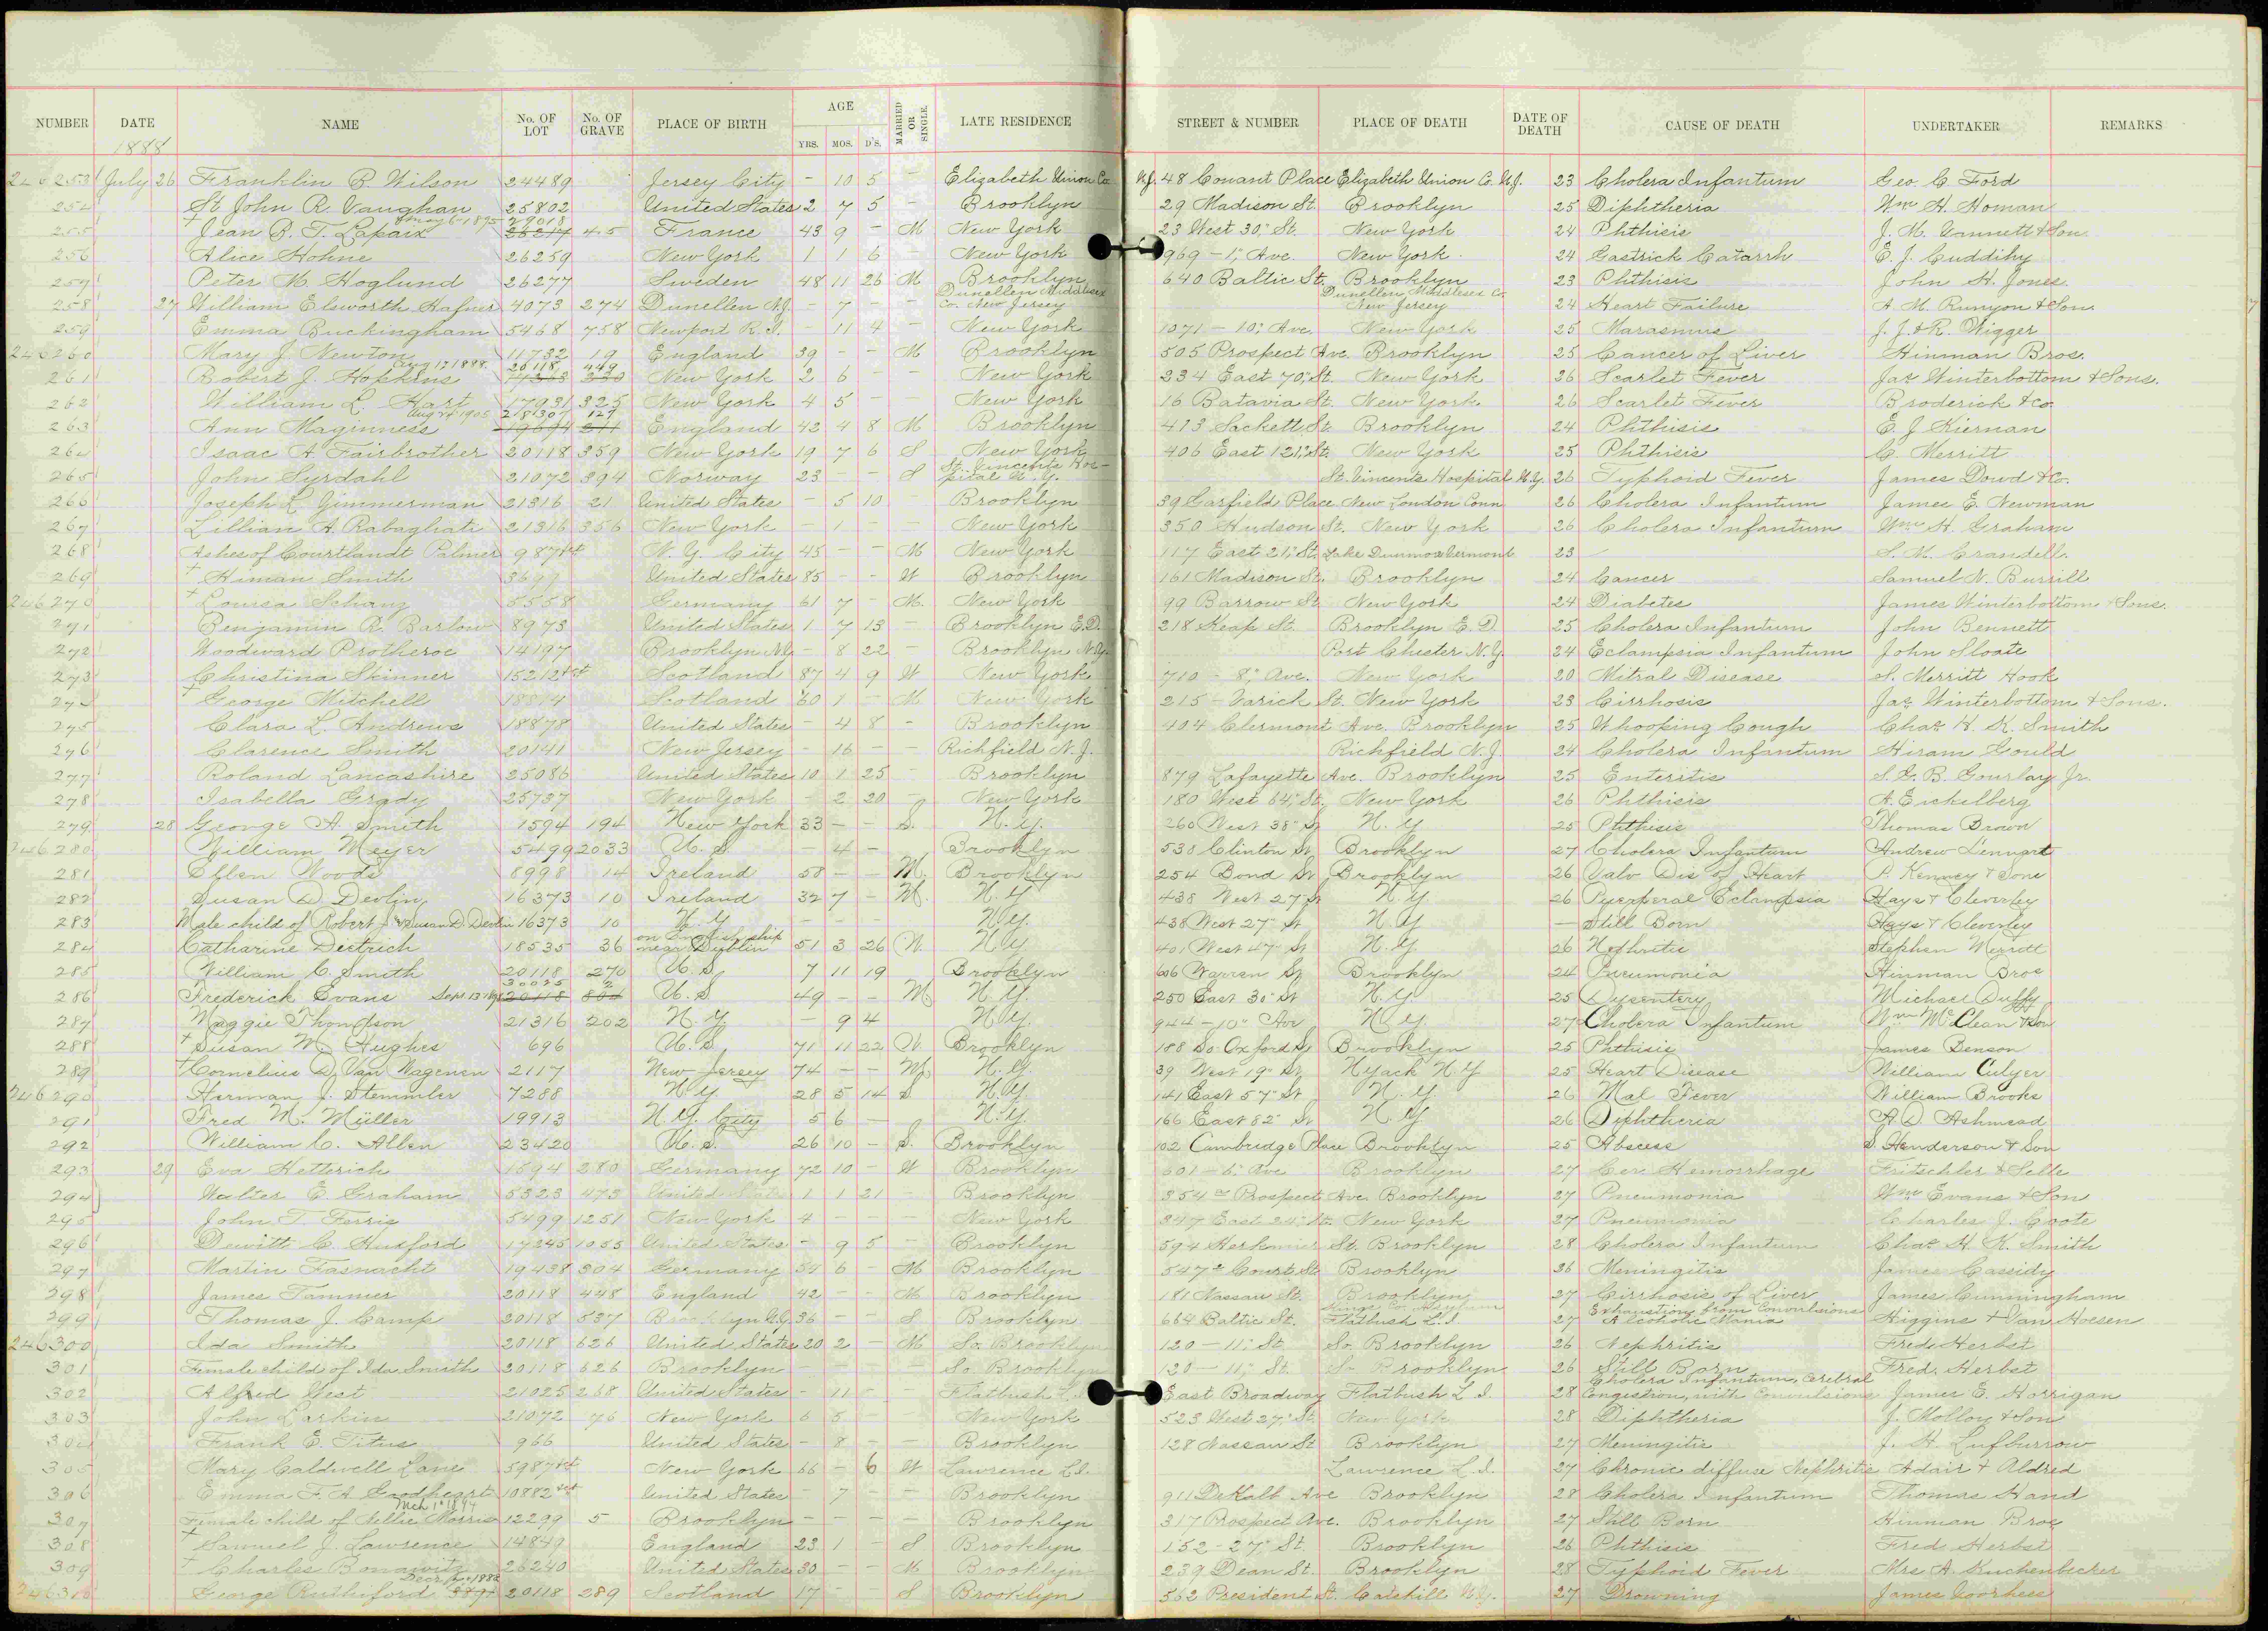 NUMBER DATE NAME No. OF LOT No. OF GRAVE PLACE OF BIRTH AGE YRS. MOS. D'S. MARRIED OR SINGLE. LATE RESIDENCE STREET & NUMBER PLACE OF DEATH DATE OF DEATH CAUSE OF DEATH UNDERTAKER REMARKS
1888
246253 July 26 Franklin B. Wilson 24489 Jersey City - 10 5 - Elizabeth Union Co. N.J. 48 Conant Place Elizabeth Union Co. N.J. 23 Cholera Infantum Geo. C. Ford
254 St. John R. Vaughan 25802 United States 2 7 5 - Brooklyn 29 Madison St. Brooklyn 25 Diphtheria Wm H. Homan
255 + Jean B. T. Lapaix May 6-1895 29018 26217 45 France 43 9 - M New York 23 West 30" St. New York 24 Phthisis J. M. & Son
256 Alice Hohne 26259 New York 1 1 6 - New York 969 - 1" Ave. New York 24 Gastrick Catarrh E. J. Cuddihy
257 Peter M. Hoglund 26277 Sweden 48 11 26 M Brooklyn 640 Baltic St. Brooklyn 23 Phthisis John H. Jones.
258 27 William Elsworth Hafner 4073 274 Dunellen N.J. - 7 - - Dunellen Middlesex Co. New Jersey Dunellen Middlesex Co. New Jersey 24 Heart Failure A. M. Runyon & Son
259 Emma Buckingham 5468 758 Newport R.I. - 11 4 - New York 1071 - 10" Ave. New York 25 Marasmus J. J. & R. Wigger
246260 Mary J. Newton 11732 19 England 39 - - M Brooklyn 505 Prospect Ave. Brooklyn 25 Cancer of Liver Hinman Bros.
261 Robert J. Hopkins Aug 12 1898. 26118 449 New York 2 6 - - New York 234 East 70" St. New York 26 Scarlet Fever Jas Winterbottom & Sons.
262 William L. Hart 17931 325 New York 4 5 - - New York 16 Batavia St. New York 26 Scarlet Fever Broderick & Co.
263 Ann Maginness Aug 24 1905 127 England 42 4 8 M Brooklyn 413 Sackett St. Brooklyn 24 Phthisis E. J. Kiernan
264 Isaac A. Fairbrother 20118 359 New York 19 7 6 S New York 406 East 121" St. New York 25 Phthisis C. Merritt
265 John Syrdahl 21072 394 Norway 23 - - S St. Vincents Hospital N.Y. St. Vincents Hospital N.Y. 26 Typhoid Fever James Dowd & Co.
266 Joseph L. Zimmerman 21316 21 United States - 5 10 - Brooklyn 39 Garfield Place New London Conn 26 Cholera Infantum James E. Newman
267 Lillian A. Rabagliati 21316 356 New York - 1 - - New York 350 Hudson St. New York 26 Cholera Infantum Wm H. Graham
268 Ashes of Courtlandt Palmer 987 N. Y. City 45 - - M New York 117 East 21" St. Lake Dunmore Vermont 23 - S. M. Crandell.
269 + Himan Smith United States 85 - - W Brooklyn 161 Madison St. Brooklyn 24 Cancer Samuel N. Burrill
246270 + Louisa Schanz 5558 Germany 61 7 - M. New York 99 Barrow St. New York 24 Diabetes James Winterbottom & Sons.
271 Benjamin R. Barlow 8973 United States 1 7 13 - Brooklyn E.D. 218 Keap St. Brooklyn E. D. 25 Cholera Infantum John Bennett
272 Woodward Protheroe 14197 Brooklyn N.Y. - 8 22 - Brooklyn N.Y. Port Chester N.Y. 24 Eclampsia Infantum John Sloate
273 Christina Skinner 15212 Scotland 87 4 9 W New York 710 - 8" Ave. New York 20 Mitral Disease S. Merritt Hook
274 + George Mitchell 18814 Scotland 60 1 - M New York 215 - Varick St. New York 23 Cirrhosis Jas Winterbottom & Sons.
275 Clara L. Andrews 18878 United States - 4 8 - Brooklyn 404 Clermont Ave. Brooklyn 25 Whooping Cough Chas H. K. Smith
276 Clarence Smith 20141 New Jersey - 16 - - Richfield N.J. Richfield N.J. 24 Cholera Infantum Hiram Gould
277 Roland Lancashire 25086 United States 10 1 25 Brooklyn 879 Lafayette Ave. Brooklyn 25 Enteritis S. L. B. Gourlay Jr.
278 Isabella Grady 25737 New York - 2 20 - New York 180 West 64" St. New York 26 Phthisis A. Eickelberg
279 28 George A. Smith 1594 194 New York 33 - - S. N.Y. 260 West 38" St N.Y 25 Phthisis Thomas Brown
246280 William Meyer 5499 2033 U. S. - 4 - Brooklyn 538 Clinton St Brooklyn 27 Cholera Infantum Andrew Lennart
281 Ellen Woods 8998 14 Ireland 58 - - M. Brooklyn 254 Bond St Brooklyn 26 Valv Dis of Heart P. Kenney & Sons
282 Susan D. Devlin 16373 10 Ireland 32 7 - M. N.Y 438 West 27" St N.Y. 26 Puerperal Eclampsia Hays & Cleverley
283 Male child of Robert J. & Susan D Devlin 16373 10 N.Y - - - N.Y. 438 West 27" St N.Y - Still Born Hays & Cleverley
284 Catharine Dietrich 18535 36 on English ship near Dublin 51 3 26 W. N.Y 401 West 47" St N.Y. 26 Nephritis Stephen Merritt
285 William C. Smith 20118 270 U. S. 7 11 19 Brooklyn 606 Warren St Brooklyn 24 Pneumonia Hinman Bros
286 Frederick Evans Sept 13 30025 2 20118 U. S 49 - - M N.Y. 250 East 30" St N.Y. 25 Dysentery Michael Duffy
287 Maggie Thompson 21316 202 N.Y. - 9 4 N.Y. 944 - 10" Av N.Y 27 Cholera Infantum Wm McClean & Son
288 + Susan M. Hughes 696 U. S. 71 11 22 W. Brooklyn 188 So. Oxford St Brooklyn 25 Phthisis James Benson
289 + Cornelius D. Van Wagenen 2117 New Jersey 74 - - M. N.Y. 39 West 19" St Nyack N.Y 25 Heart Disease William Culyer
246290 Herman J. Stemmler 7288 N.Y. 28 5 14 S N.Y. 141 East 57" St N.Y 26 Mal Fever William Brooks
291 Fred M. Müller 19913 N.Y. City 5 6 - N.Y. 166 East 82" St N.Y. 26 Diphtheria A. D. Ashmead
292 William C. Allen 23420 U. S. 26 10 - S. Brooklyn 102 Cambridge Place Brooklyn 25 Abscess D. Henderson & Son
293 29 Eva Hetterich 1594 280 Germany 72 10 - W Brooklyn 601 - 6" Ave Brooklyn 27 Cer. Hemorrhage Fritschler & Selle
294 Walter E. Graham 5323 473 United States 1 1 21 - Brooklyn 354 Prospect Ave. Brooklyn 27 Pneumonia Wm Evans & Son
295 John T. Ferris 5499 1251 New York 4 - - - New York 347 East 24" St. New York 27 Pneumonia Charles J. Coote
296 Dewitt C. Huxford 17245 1055 United States - 9 5 - Brooklyn 594 Herkimer St. Brooklyn 28 Cholera Infantum Chas H. K. Smith
297 Martin Fasnacht 19438 304 Germany 54 6 - M Brooklyn 547 Court St. Brooklyn 26 Meningitis James Cassidy
298 James Tammer 20118 448 England 42 - - M Brooklyn 181 Nassau St. Brooklyn 27 Cirrhosis of Liver James Cunningham
299 Thomas J. Camp 20118 537 Brooklyn 36 - - S Brooklyn 664 Baltic St. Kings Co. Asylum Flatbush L.I 27 Exhaustion from Convulsions Alcoholic Mania Higgins & Van Hoesen
246300 Ida Smith 20118 626 United States 20 2 - M So. Brooklyn 120 - 11" St. So. Brooklyn 26 Nephritis Fred. Herbst
301 Female child of Ida Smith 20118 626 Brooklyn - - - So. Brooklyn 120 - 11" St. So. Brooklyn 26 Still Born Fred. Herbst
302 Alfred West 21025 268 United States - 11 - - Flatbush L.I. East Broadway Flatbush L.I. 28 Cholera Infantum, Cerebral Congestion, with Convulsions James E. Horrigan
303 John Larkin 21072 76 New York 6 5 - New York 523 West 27" St. New York 28 Diphtheria J. Molloy & Son
304 Frank E. Titus 966 United States - 8 - - Brooklyn 128 Nassau St Brooklyn 27 Meningitis J. H. Lufburrow
305 Mary Caldwell Lane 5987 New York 66 - 6 W Lawrence L.I. Lawrence L.I. 27 Chronic diffuse Nephritis Adair & Aldred
306 Emma F. A. Goodheart 10882 United States - 7 - - Brooklyn 911 DeKalb Ave Brooklyn 28 Cholera Infantum Thomas Hand
307 Female child of Nellie Morris Mch 1st 1894 12299 5 Brooklyn - - - - Brooklyn 317 Prospect Ave. Brooklyn 27 Still Born Hinman Bros
308 + Samuel J. Lawrence 14849 England 23 1 - S Brooklyn 152 - 27" St. Brooklyn 26 Phthisis Fred Herbst
309 + Charles Bonawitz 26240 United States 30 - - M Brooklyn 239 Dean St. Brooklyn 28 Typhoid Fever Mrs A. Kuchenbecker
246310 George Rutherford Dec 1888 20118 289 Scotland 17 - - S Brooklyn 562 President St. Catskill N.Y. 27 Drowning James Voorhees